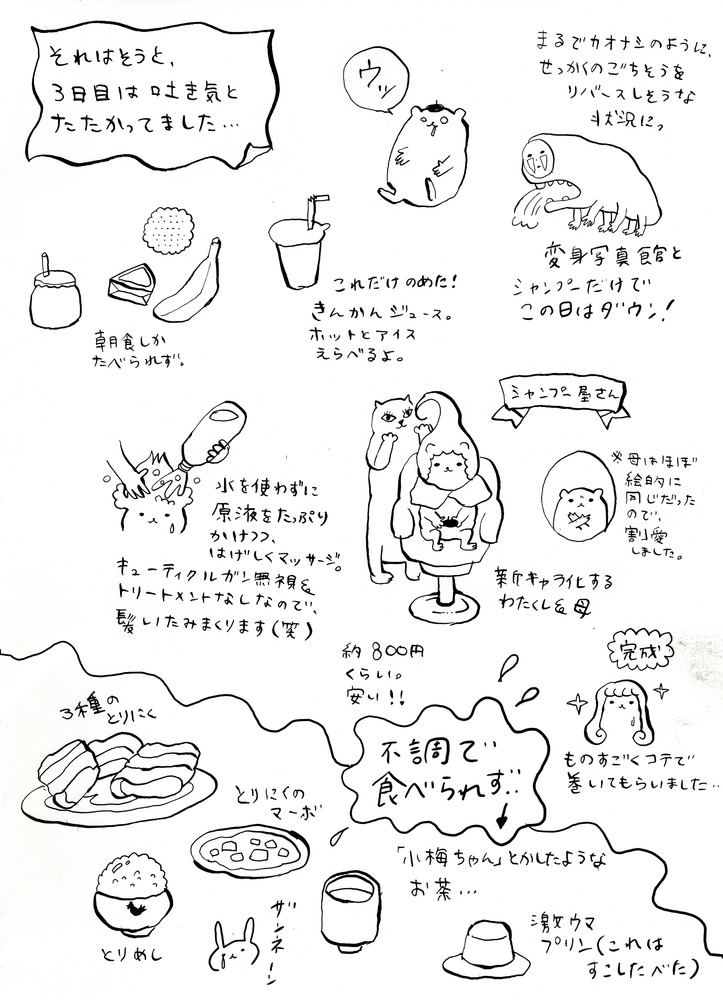 それはそうと、
3日目は吐き気と
たたかってました…
ウッ
まるでカオナシのように、
せっかくのごちそうを
リバースしそうな
状況に。
変身写真館と
シャンプーだけで
この日はダウン!
これだけのめた!
きんかんジュース。
ホットとアイス
えらべるよ。
朝食しか
たべられず。
シャンプー屋さん
水を使わずに
原液をたっぷり
かけつつ、
はげしくマッサージ。
キューティクルガン無視&
トリートメントなしなので、
髪いたみまくります(笑)
※母はほぼ
絵的に
同じだった
ので、
割愛
しました。
新キャラ化する
わたくし&母
約800円
くらい。
安い!!
完成
ものすごくコテで
巻いてもらいました…
3種の
とりにく
不調で
食べられず…
とりにくの
マーボ
「小梅ちゃん」とかしたような
お茶…
とりめし
ザンネーン
激ウマ
プリン(これは
すこしたべた)